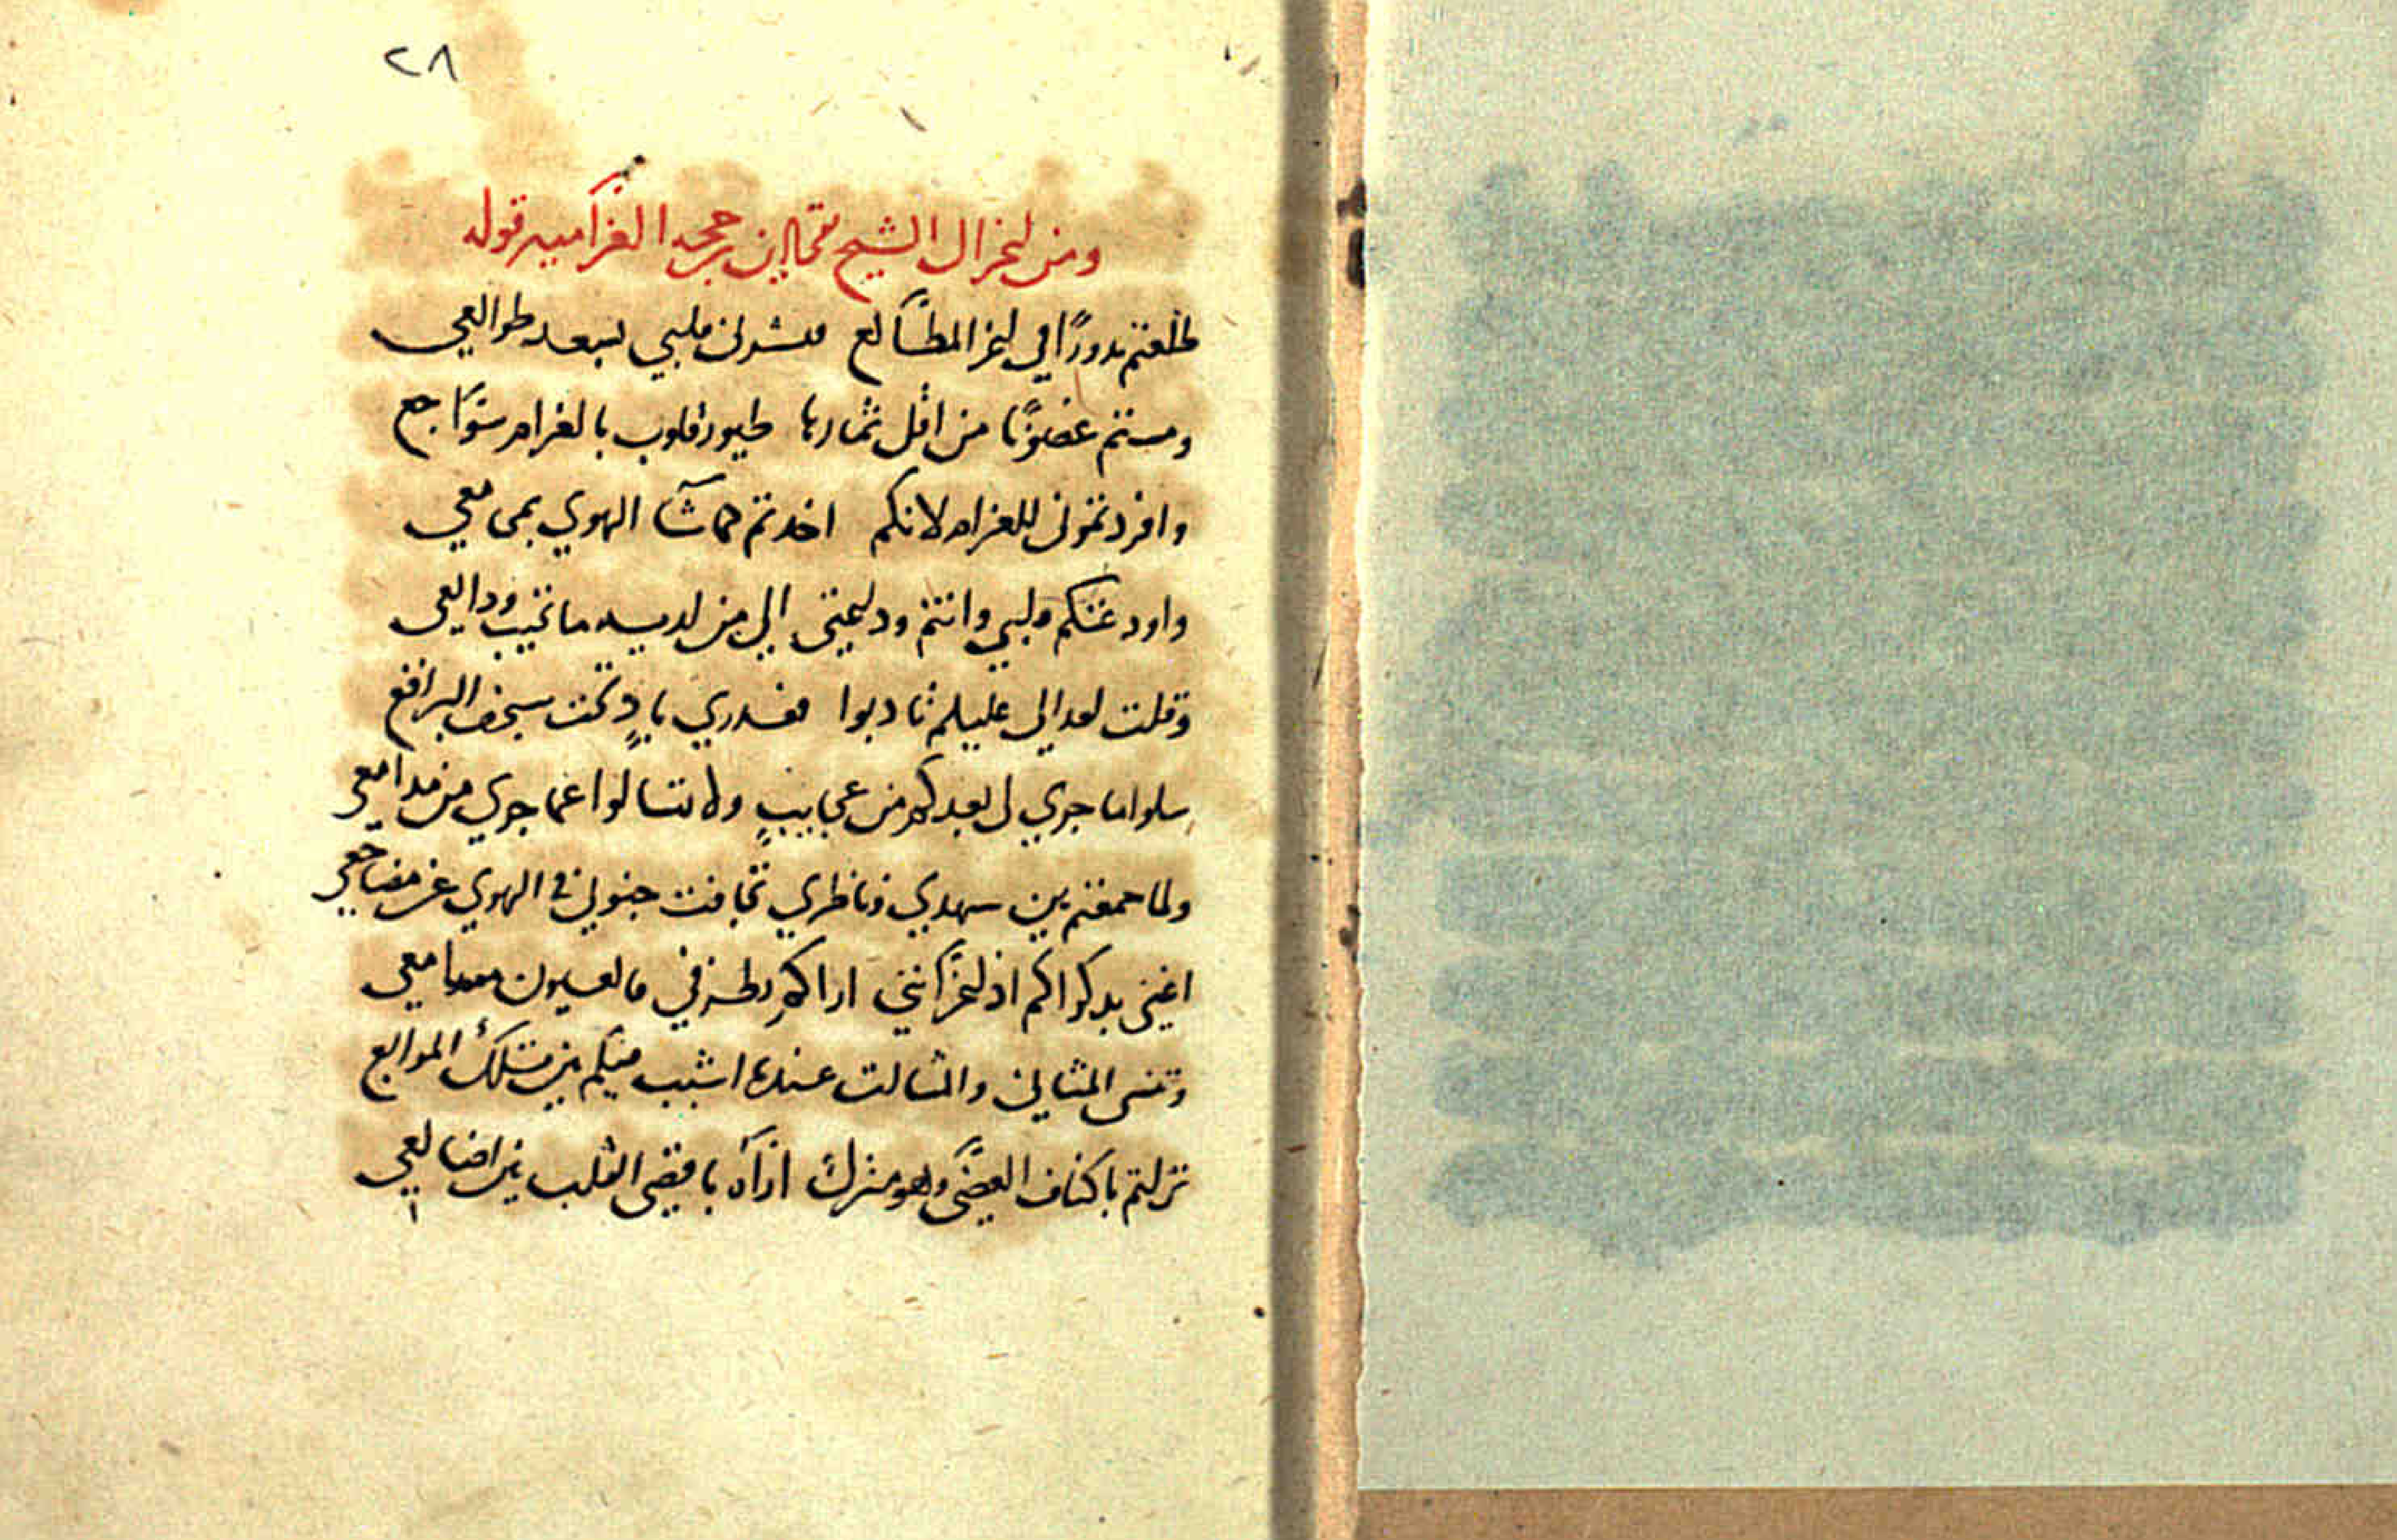 ٢٨
ومن اغزال الشيخ تقي الدين بن حجه الغراميه قوله
طلعتم بدورًا في اعز المطالع فبشرني قلبي بسعد طوالعي
ومستم غصونًا من اقل ثمارها طيور قلوب بالغرام سواجع
وافردتموني للغرام لانكم اخدتم حماشا الهوي بمجامعي
واودعتكم قلبي وانتم وديعتي الي من لديه ما تخيب ودايعي
وقلت لعدالي عليكم تادبوا فبدري باد تحت سجف البراقع
سلوا ما جري لي بعدكم من عجايب ولا تسالوا عما جري من مدامعي
ولما جمعتم بين سهدي وناظري تجافت جنوبي في الهوي عن مضاجعي
اغني بدكراكم اراكم بطرفي العيون مسامعي
المثاني والمثالث عندها اشبب منكم بين تلك المرابع
نزلتم باكناف الغضي وهو منزلي اراه باقصي القلب بين اضالعي